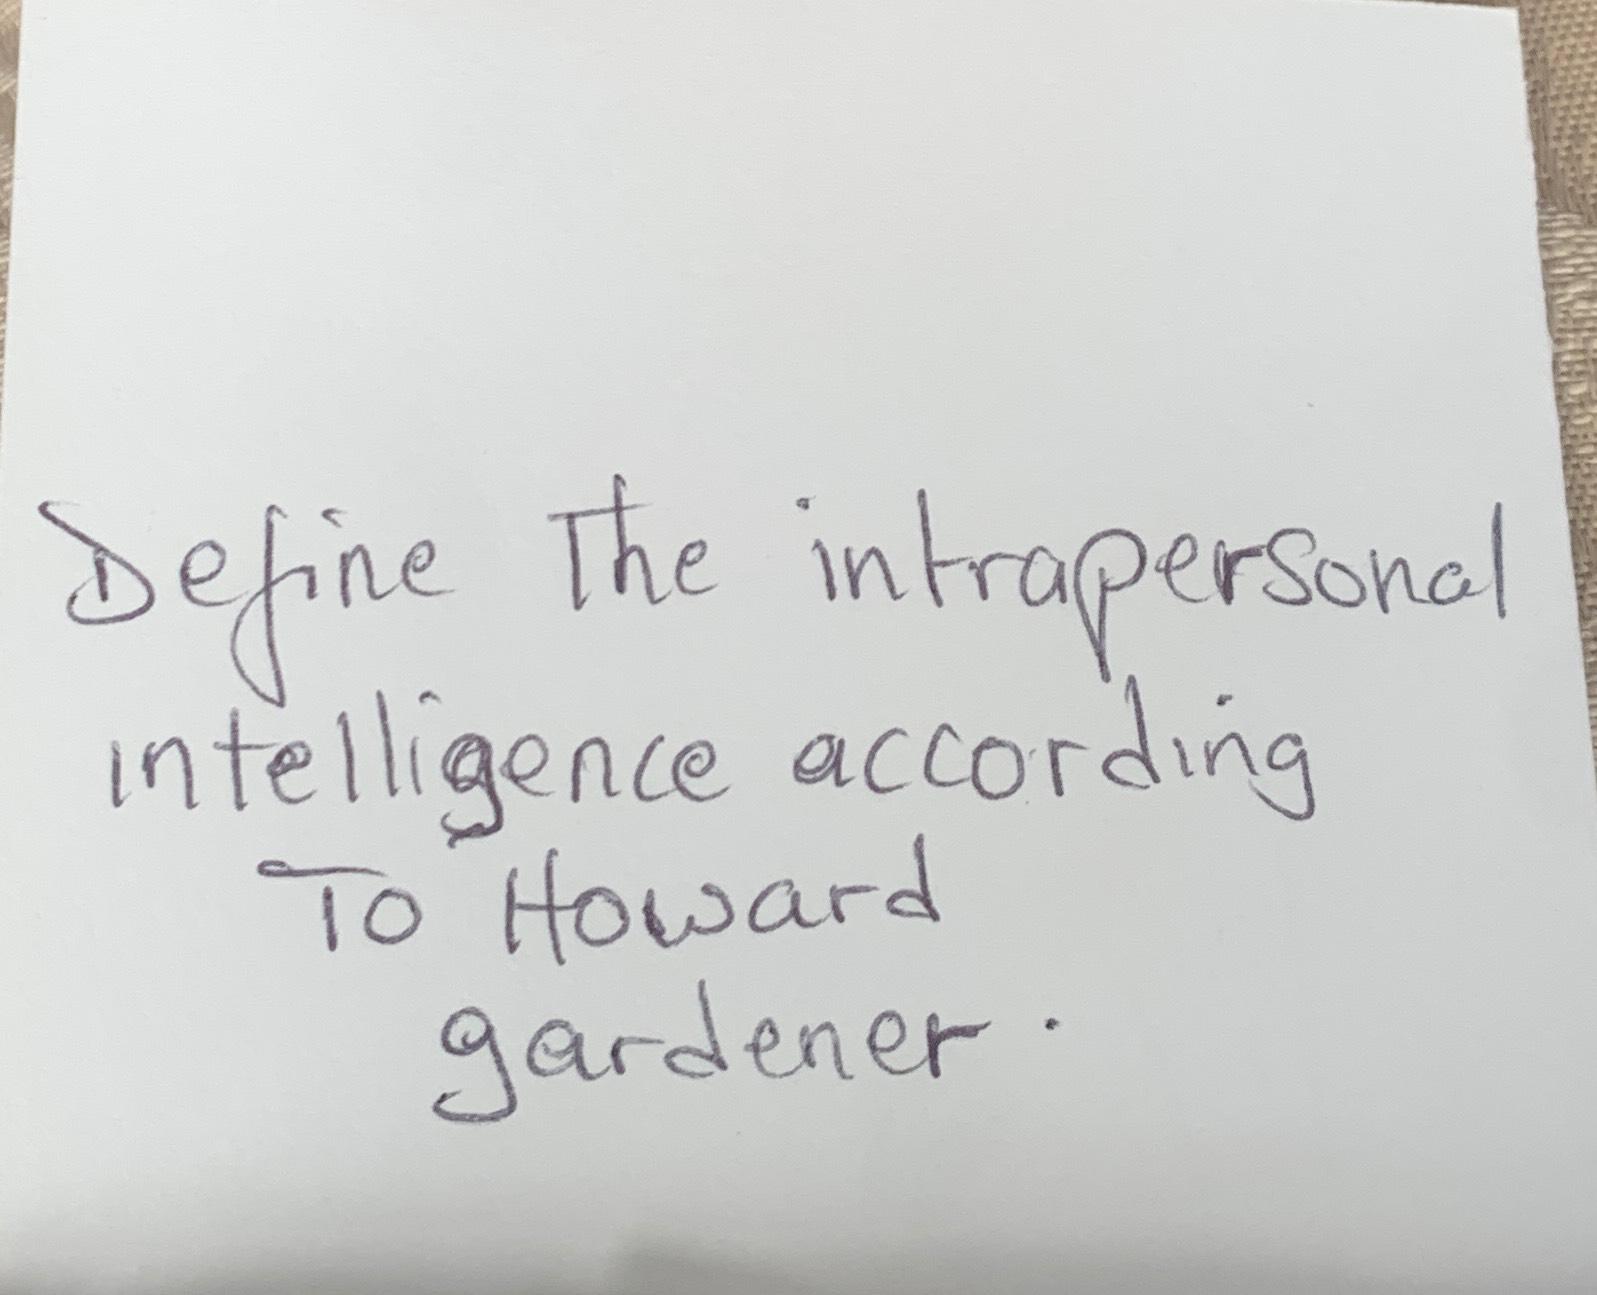 Define The intrapersonal
intelligence according
To Howard
gardener.